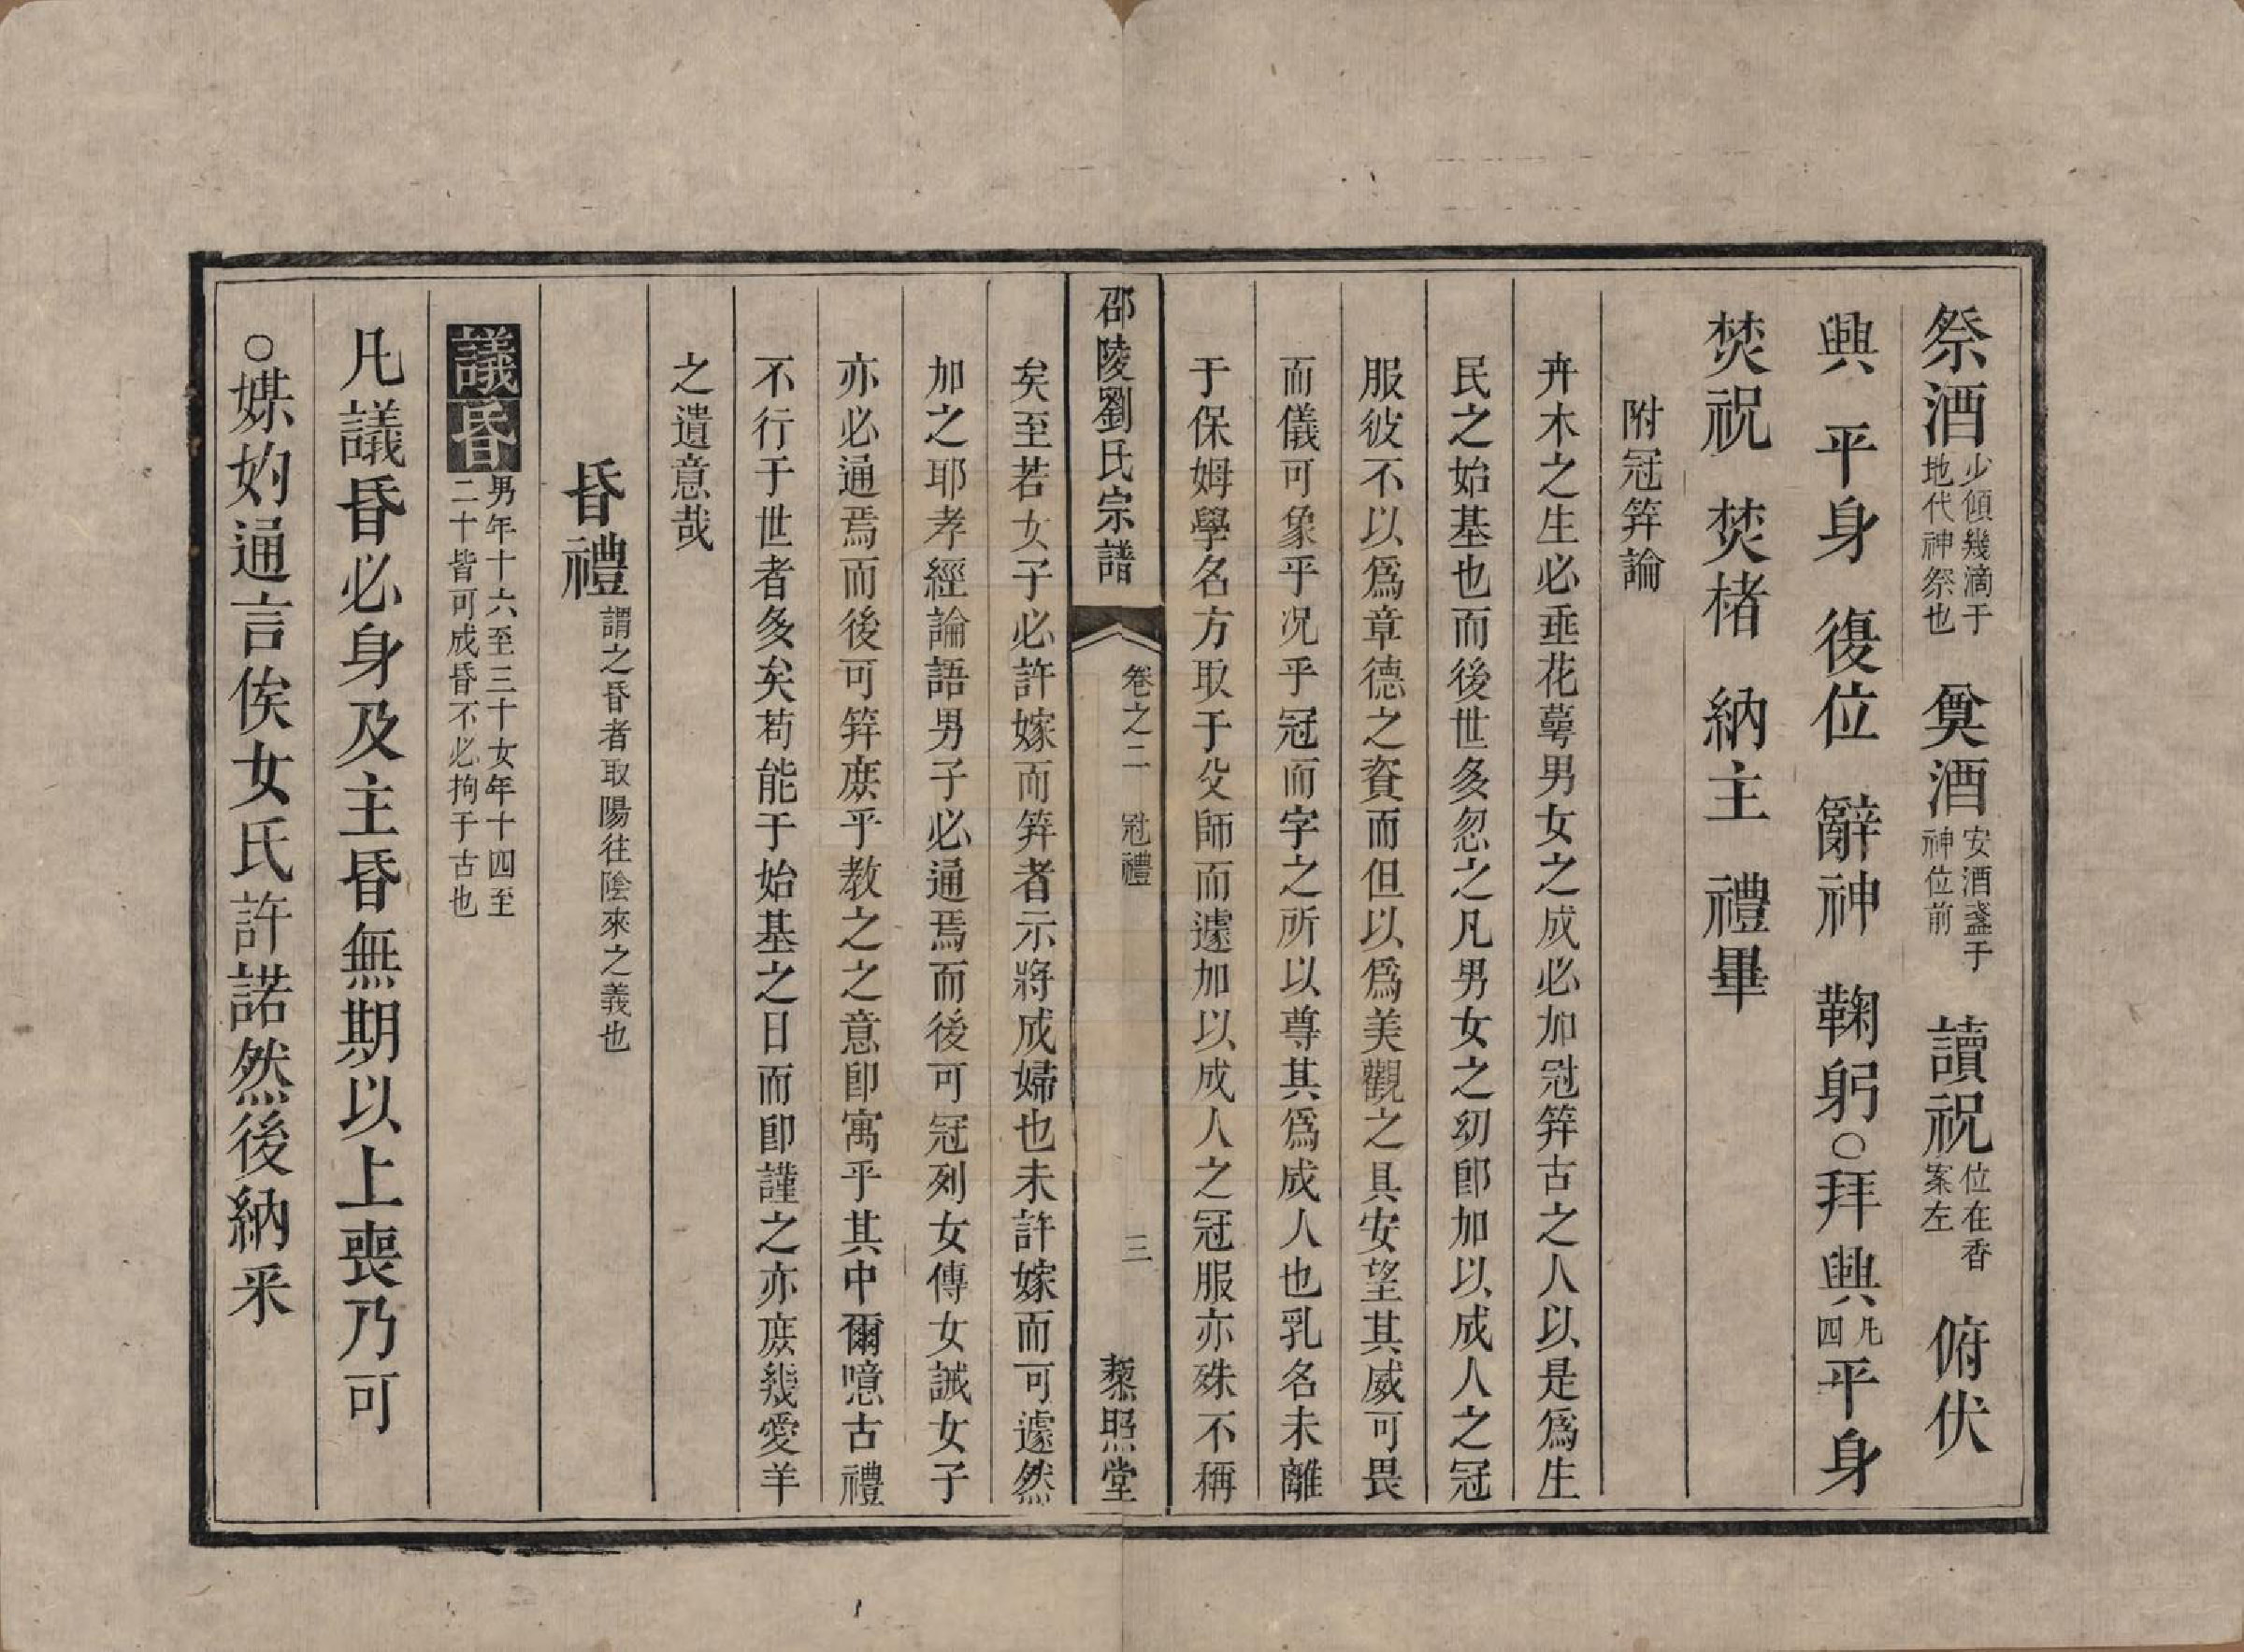 祭酒少傾幾滴于地代神祭也 奠酒安酒盞于神位前 讀祝位在香案左 俯伏
興 平身 復位 辭神 鞠躬○拜興凡四平身
焚祝 焚楮 納主 禮畢
附冠笄論
卉木之生必垂花蕚男女之成必加冠笄古之人以是爲生
民之始基也而後世多忽之凡男女之幼卽加以成人之冠
服彼不以爲章德之資而但以爲美觀之具安望其威可畏
而儀可象乎况乎冠而字之所以尊其爲成人也乳名未離
于保姆學名方取于父師而遽加以成人之冠服亦殊不稱
邵陵劉氏宗譜 卷之二 冠禮 三 藜照堂
矣至若女子必許嫁而笄者示將成婦也未許嫁而可遽然
加之耶孝經論語男子必通焉而後可冠列女傳女誡女子
亦必通焉而後可笄庶乎教之之意卽寓乎其中爾噫古禮
不行于世者多矣苟能于始基之日而卽謹之亦庶幾愛羊
之遺意哉
昏禮謂之昏者取陽往陰來之義也
議昏男年十六至三十女年十四至二十皆可成昏不必拘于古也
凡議昏必身及主昏無期以上喪乃可
○媒妁通言俟女氏許諾然後納采